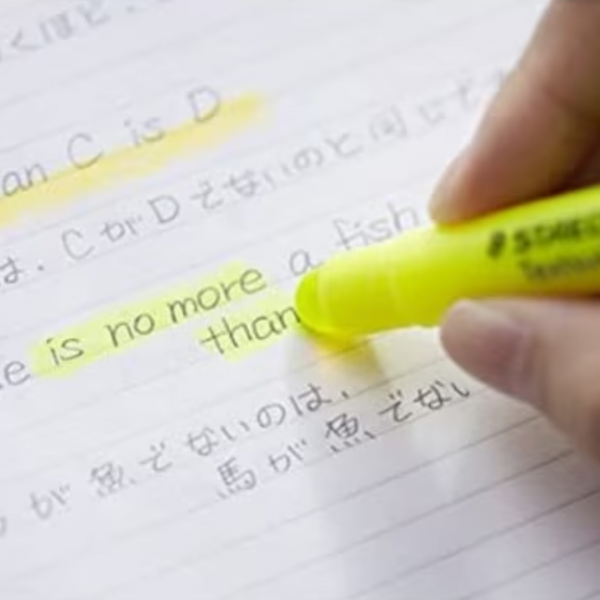 くほど、
an C is D
は、CがDでないのと同じで
e is no more a fish
than
が魚でないのは、
馬が魚でない